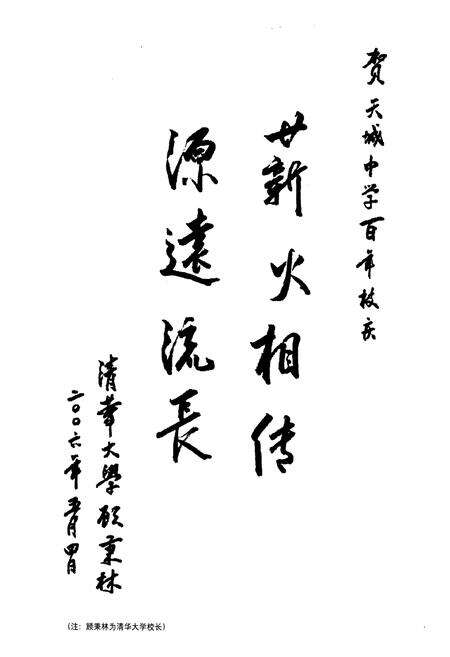 贺天城中学百年校庆
薪火相传
源遠流長
清華大學顾秉林
二〇〇六年五月四日
（注：顾秉林为清华大学校长）